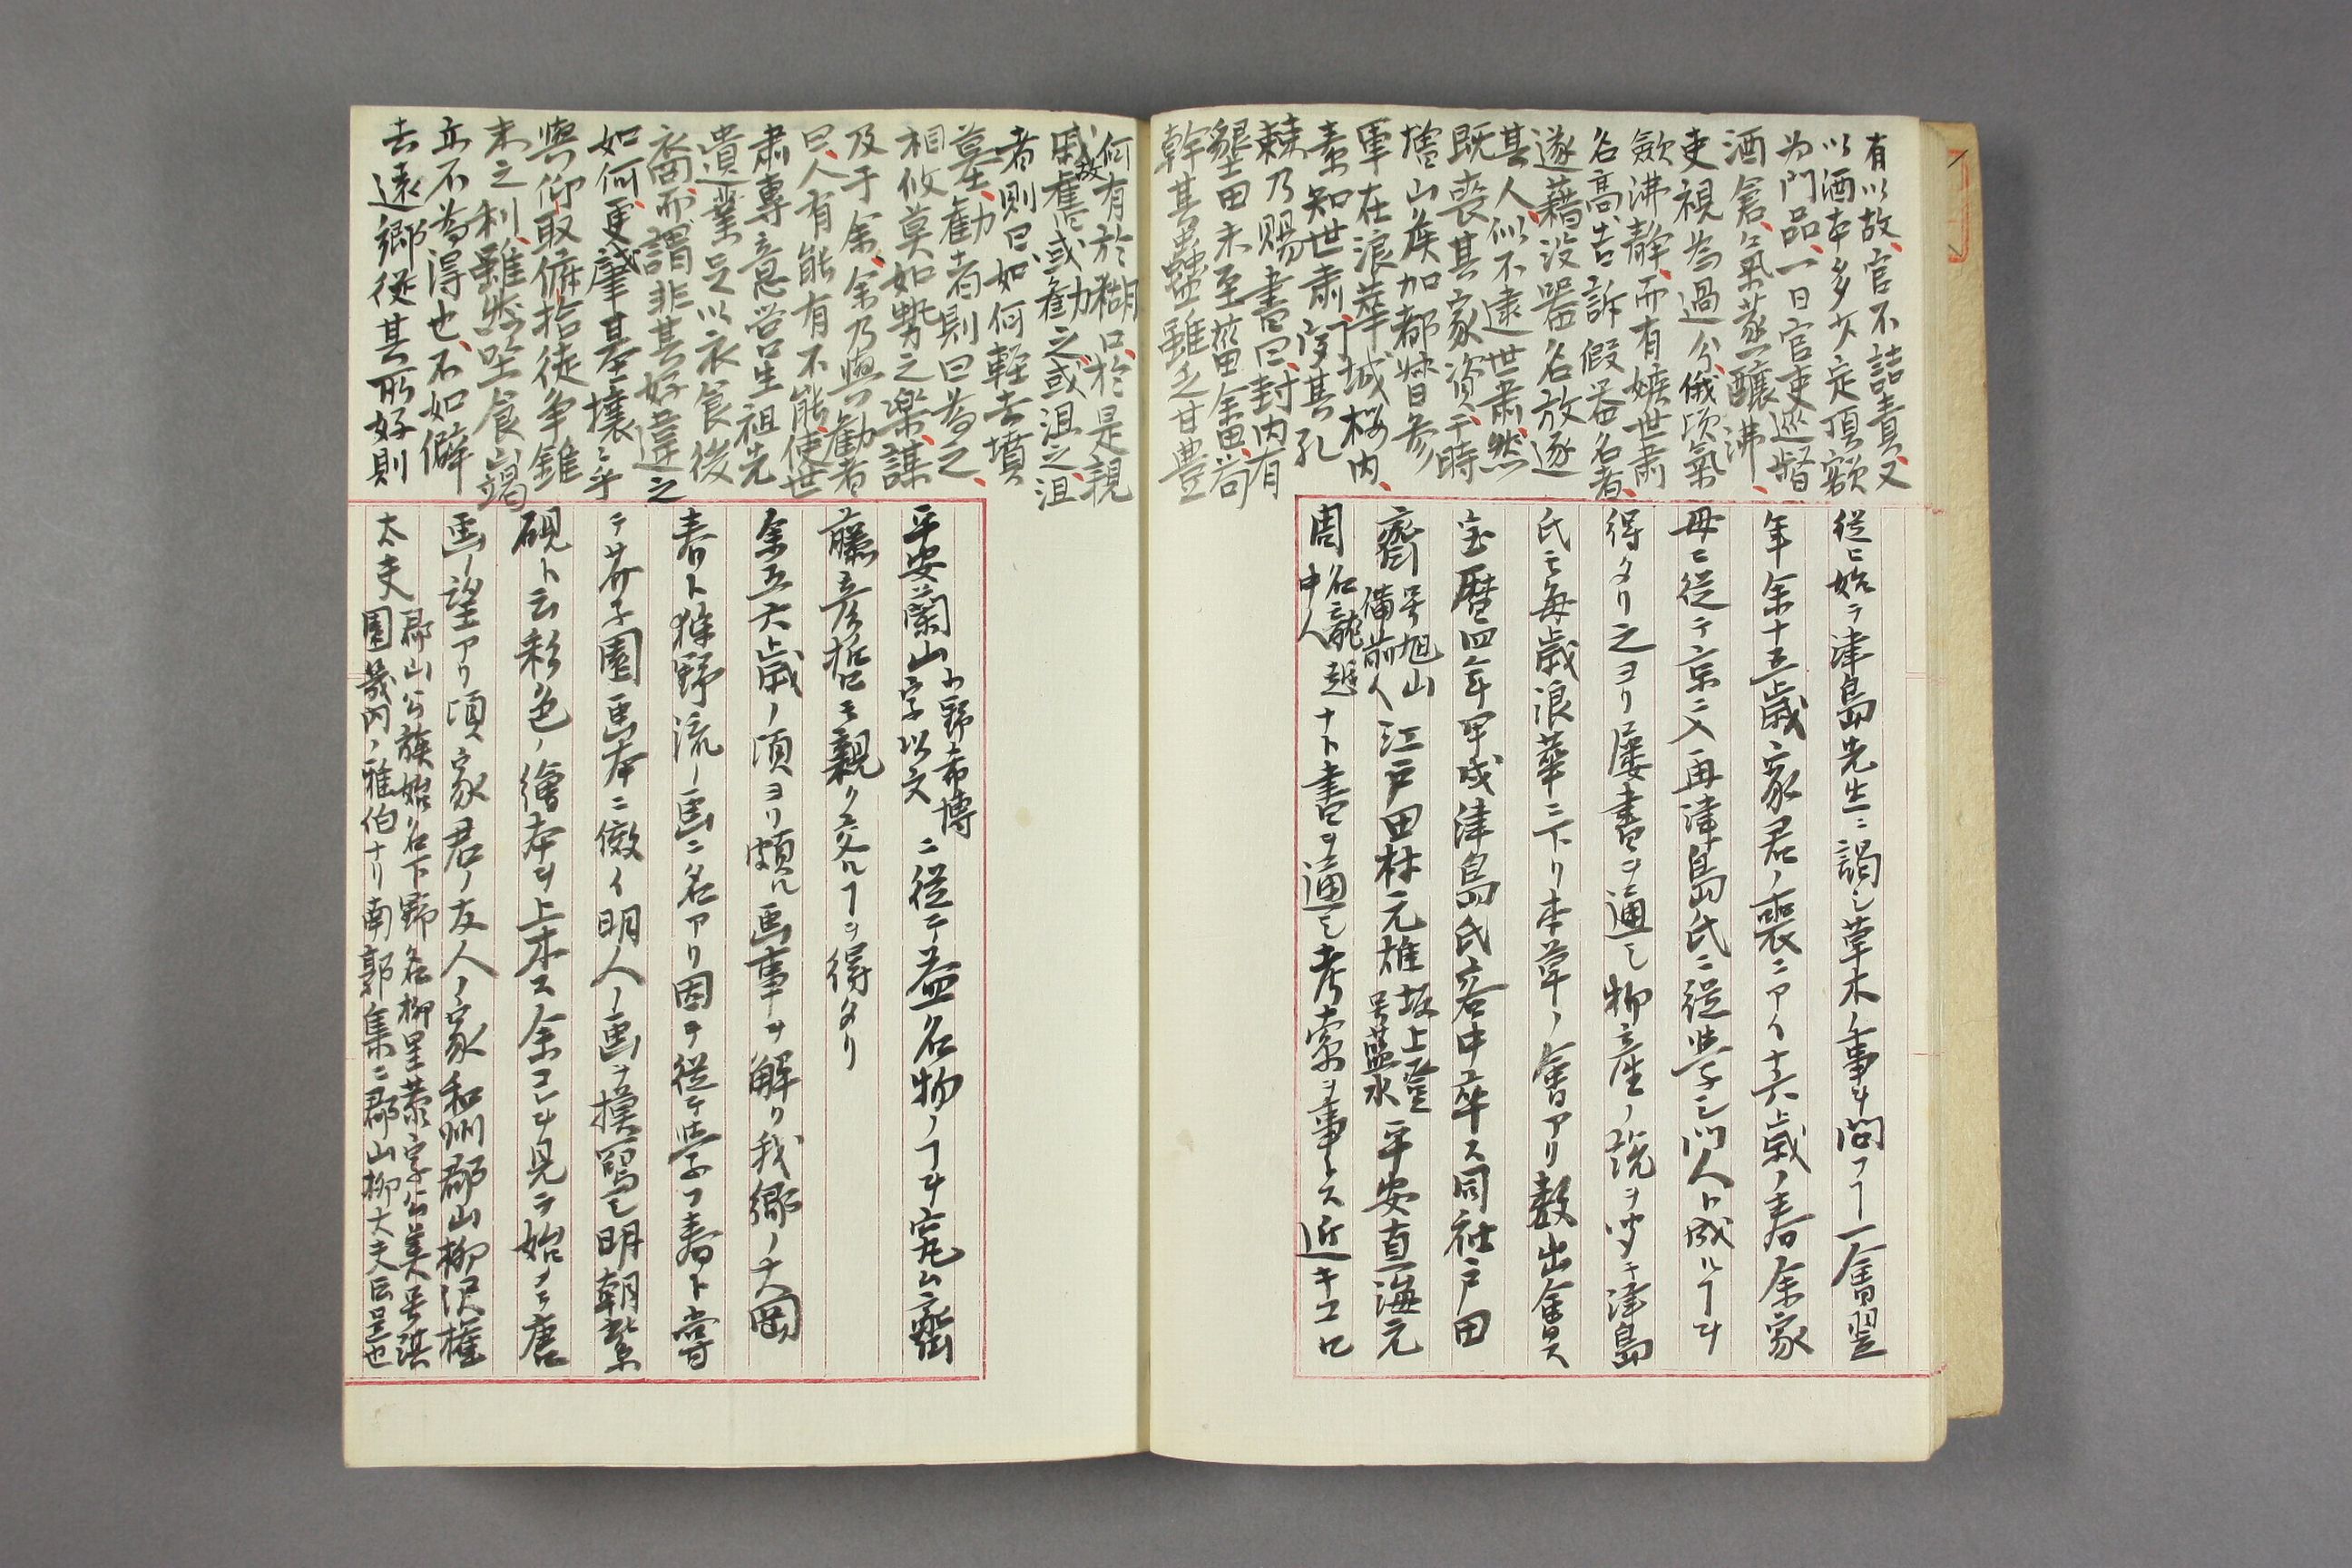 有以故、官不詰責、又
以酒本多少定頂額
为門品、一日官吏巡督
酒倉、氣蒸釀沸、
吏視為過分、俄頃氣
歛沸静、而有嫉世肅
名高、告訴假器名者、
遂藉没器名放逐
其人、似不逮世肅、然
既喪其家資、于時
増山侯加都督参
軍在浪華城、桜内
素知世肅、下
棘乃賜書曰、封内有
墾田未至菑畬、尚
幹其蠱、雖乏甘豊
從ヒ始テ津島先生ニ謁シ草木ノ事ヲ問フヿ一會翌
年余十五歳家君ノ喪ニアイ十六歳ノ春余家
母ニ從テ京ニ入再津島氏ニ從学シ門人ト成ルヿヲ
得タリ之ヨリ屡書ヲ通シ物産ノ説ヲ聞キ津島
氏モ毎歳浪華ニ下リ本草ノ會アリ数出會ス
宝暦四年甲戌津島氏客中卒ス同社戸田
齋 号旭山 備前人 江戸田村元雄 坂上登 号藍水 平安直海元
周 名龍 越中人 ナト書ヲ通シ考索ヲ事トス近キコロ
何有於糊口、於是親
戚故舊、或勸之、或沮之、沮
者則曰、如何輕去墳
墓、勸者則曰、為之、
相攸莫如勢之楽、謀
及于余、余乃與勸者
曰、人有能有不能、使世
肅專意営生、祖先
遺業足以衣食後
裔、而謂非其好違之
如何、更肇基壌ニ乎
與仰取俯拾徒争錐
末之利、雖然坐食
亦不為得也、不如僻
去遠郷、從其所好則
平安蘭山 小野希博 字以文 ニ從テ益名物ノヿヲ究ム齋
藤彦哲モ親ク交ルヿヲ得タリ
余五六歳ノ頃ヨリ頗ル画事ヲ解リ我郷ノ大岡
春卜狩野流ノ画ニ名アリ因テ從テ学フ春卜嘗
テ芥子園画本ニ倣イ明人ノ画ヲ摸冩シ明朝紫
硯ト云彩色ノ繪本ヲ上木ス余コレヲ見テ始メテ唐
画ノ望アリ頃家君ノ友人ノ家和州郡山柳沢権
太夫 郡山公族始名下野後名柳里恭字公美号淇
園畿内ノ雅伯ナリ南郭集ニ郡山柳大夫ト云是也